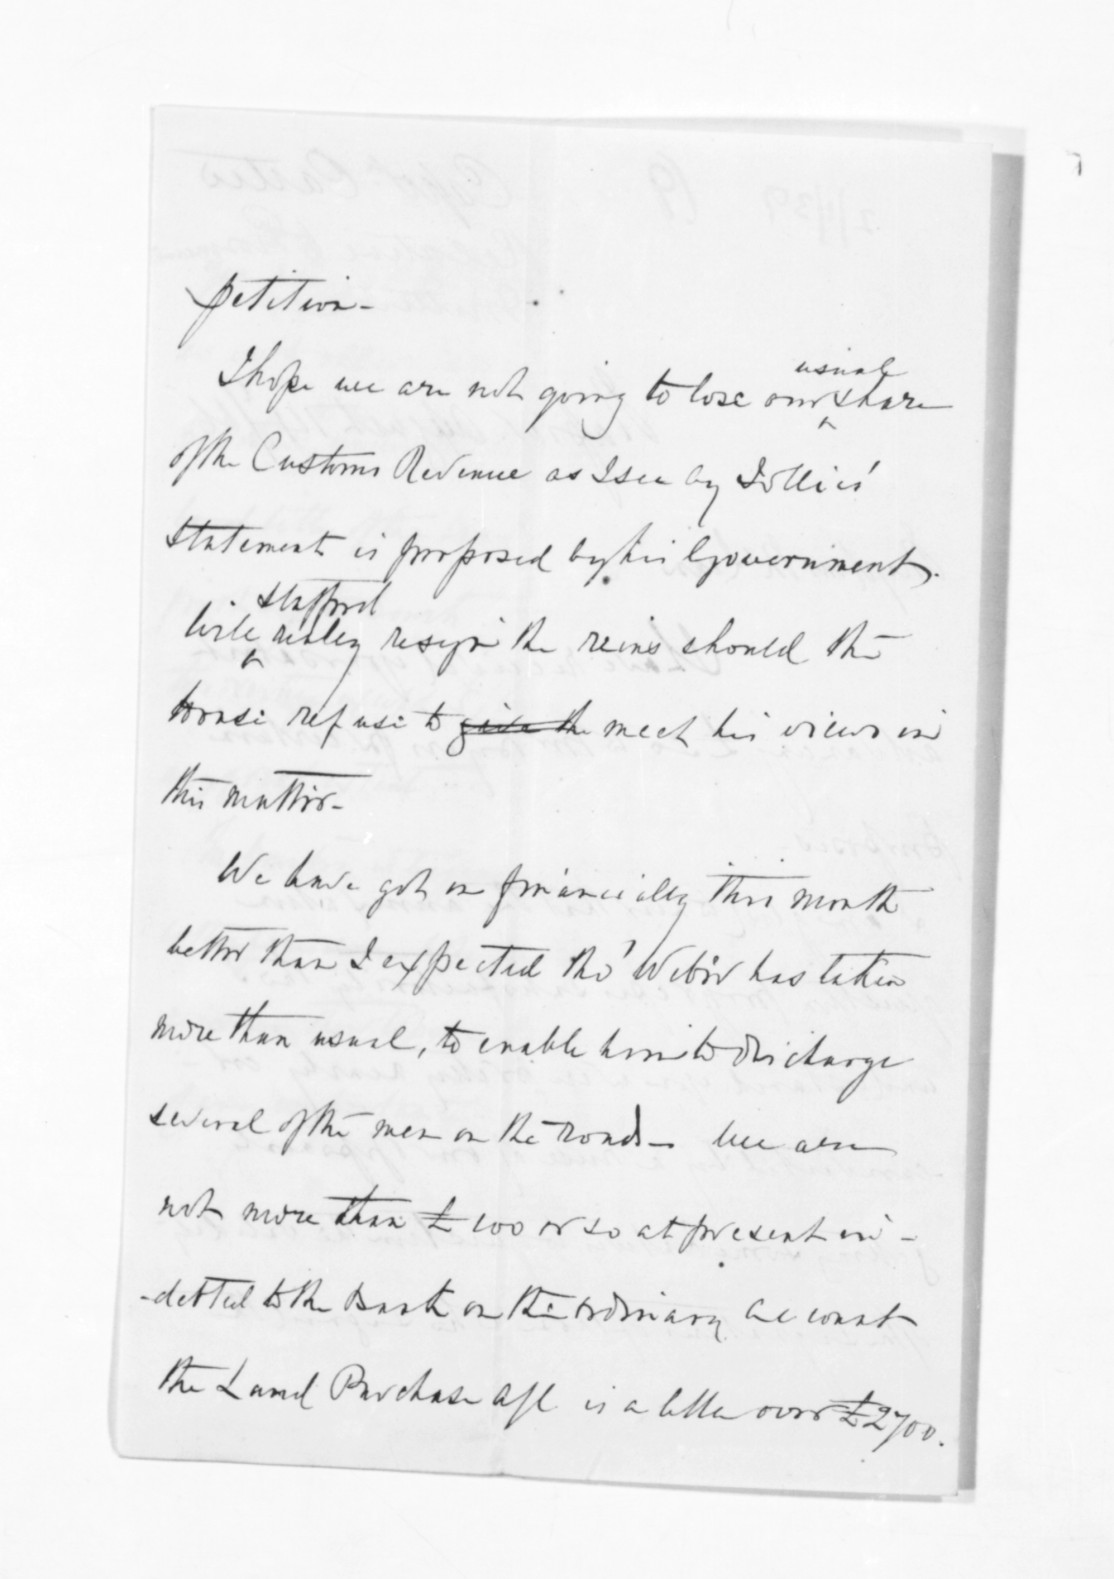 petition -
I hope we are not going to lose our usual share
of the Customs Revenue as I see by Jollies'
Statement is proposed by his Government.
Will Stafford really resign the reins should the
House refuse to give the meet his views in
this matter -
We have got on financially this month
better than I expected tho' Weber has taken
more than usual, to enable him to discharge
several of the men on the roads - We are
not more than £100 or so at present in -
- debted to the Bank on the ordinary account
the Land Purchase a/c is a little over £2700.